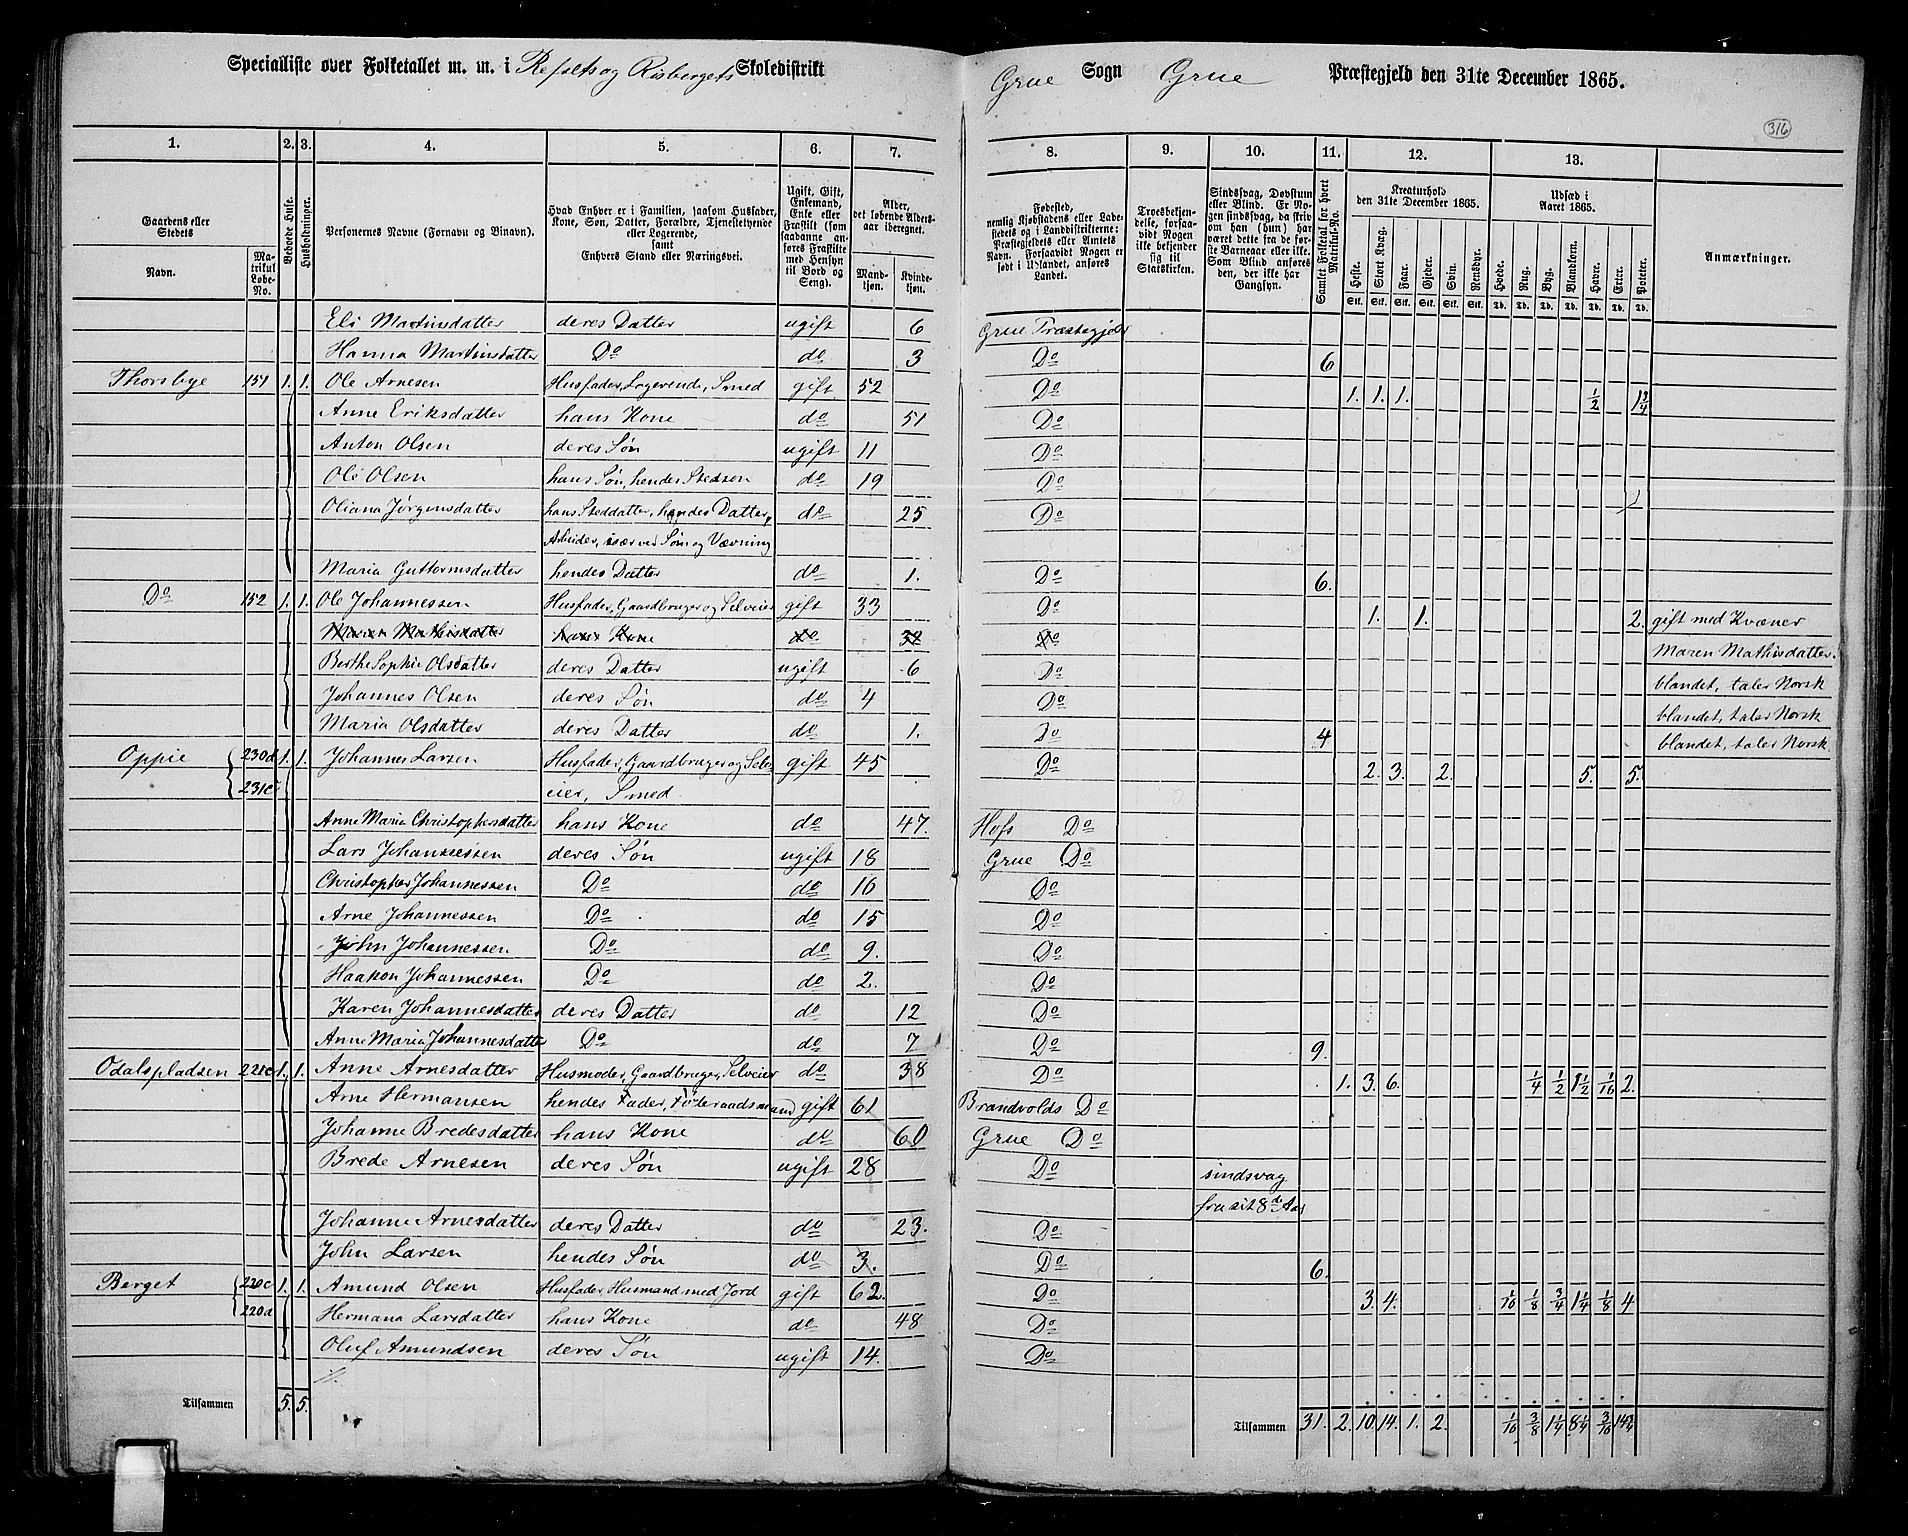 Specialliste over Folketallet m. m. i Refsets og Risbergets Skoledistrikt
Grue Sogn Grue Præstegjeld den 31te December 1865.
316
1. 2. 3. 4. 5. 6. 7. 8. 9. 10. 11. 12. 13.
Gaardens eller Stedets
Navn.
Matrikul Løbe-No.
Beboede Huse.
Husholdninger.
Personernes Navne (Fornavn og Binavn).
Hvad Enhver er i Familien, saasom Husfader, Kone, Søn, Datter, Forældre, Tjenestetyende eller Logerende, samt Enhvers Stand eller Næringsvei.
Ugift, Gift, Enkemand, Enke eller Fraskilt (som saadanne anføres Fraskilte med Hensyn til Bord og Seng).
Alder, det løbende Aldersaar iberegnet.
Mandkjøn. Kvindekjøn.
Fødested, nemlig Kjøbstadens eller Ladestedets og i Landdistrikterne: Præstegjeldets eller Amtets Navn. Forsaavidt Nogen er født i Udlandet, anføres Landet.
Troesbekjendelse, forsaavidt Nogen ikke bekjender sig til Statskirken.
Sindssvag, Døvstum eller Blind. Er Nogen sindssvag, da skriv om han (hun) har været dette fra de første Barneaar eller ikke. Som Blind anføres den, der ikke har Gangsyn.
Samlet Folketal for hvert Matrikul-No.
Kreaturhold den 31te December 1865.
Heste. Stort Kvæg. Faar. Gjeder. Svin. Rensdyr.
Udsæd i Aaret 1865.
Hvede. Rug. Byg. Blandkorn. Havre. Erter. Poteter.
Anmærkninger.
Eli Martinsdatter deres Datter ugift 6 Grue Præstegjeld
Hanna Martinsdatter Do do 3 Do 6
Thorsbye 151 1. 1. Ole Arnesen Husfader, Logerende, Smed gift 52 Do 1. 1. 1. 1/2 1 3/4
Anne Eriksdatter hans Kone do 51 Do
Anton Olsen deres Søn ugift 11 Do
Ole Olsen hans Søn, hendes Stedsøn do 19 Do
Oliana Jørgensdatter hans Steddatter, hendes Datter, do 25 Do
Arbeider, især ved Søm og Vævning
Maria Guttormsdatter hendes Datter do 1. Do 6.
Do 152 1. 1. Ole Johannessen Husfader, Gaardbruger og Selveier gift 33 Do 1. 1. 2. gift med Kvæner
Maren Mathisdatter hans Kone do 32 Do Maren Mathisdatter.
Berthe Sophie Olsdatter deres Datter ugift 6 Do blandet, taler Norsk
Johannes Olsen deres Søn do 4 Do blandet, taler Norsk
Maria Olsdatter deres Datter do 1. Do 4 blandet, taler Norsk
Oppie 230d 1. 1. Johannes Larsen Husfader, Gaardbruger og Selv- gift 45 Do 2. 3. 2. 5. 5.
231c eier, Smed
Anne Maria Christophersdatter hans Kone do 47. Hofs Do
Lars Johannessen deres Søn ugift 18 Grue Do
Christopher Johannessen Do do 16 Do
Arne Johannessen Do do 15 Do
John Johannessen Do do 9. Do
Haakon Johannessen Do do 2. Do
Karen Johannesdatter deres Datter do 12 Do
Anne Maria Johannesdatter Do do 7 Do 9.
Odalspladsen 221c 1. 1. Anne Arnesdatter Husmoder, Gaardbruger, Selveier do 38 Do 1. 3. 6. 1/4 1/2 1 1/2 1/16 2.
Arne Hermansen hendes Fader, Føderaadsmand gift 61 Brandvolds Do
Johanne Bredesdatter hans Kone do 60 Grue Do
Brede Arnesen deres Søn ugift 28 Do sindsvag
fra sit 8de Aar
Johanne Arnesdatter deres Datter do 23. Do
John Larsen hendes Søn do 3. Do 6.
Berget 220c 1. 1. Amund Olsen Husfader, Husmand med Jord gift 62. Do 3. 4. 1/16 1/8 3/4 1 1/4 1/8 4
220d Hermana Larsdatter hans Kone do 48 Do
Oluf Amundsen deres Søn ugift 14. Do
Tilsammen 5. 5. Tilsammen 31. 2. 10. 14. 1. 2. 1/16 3/8 1 1/4 8 1/4 3/16 14 3/4